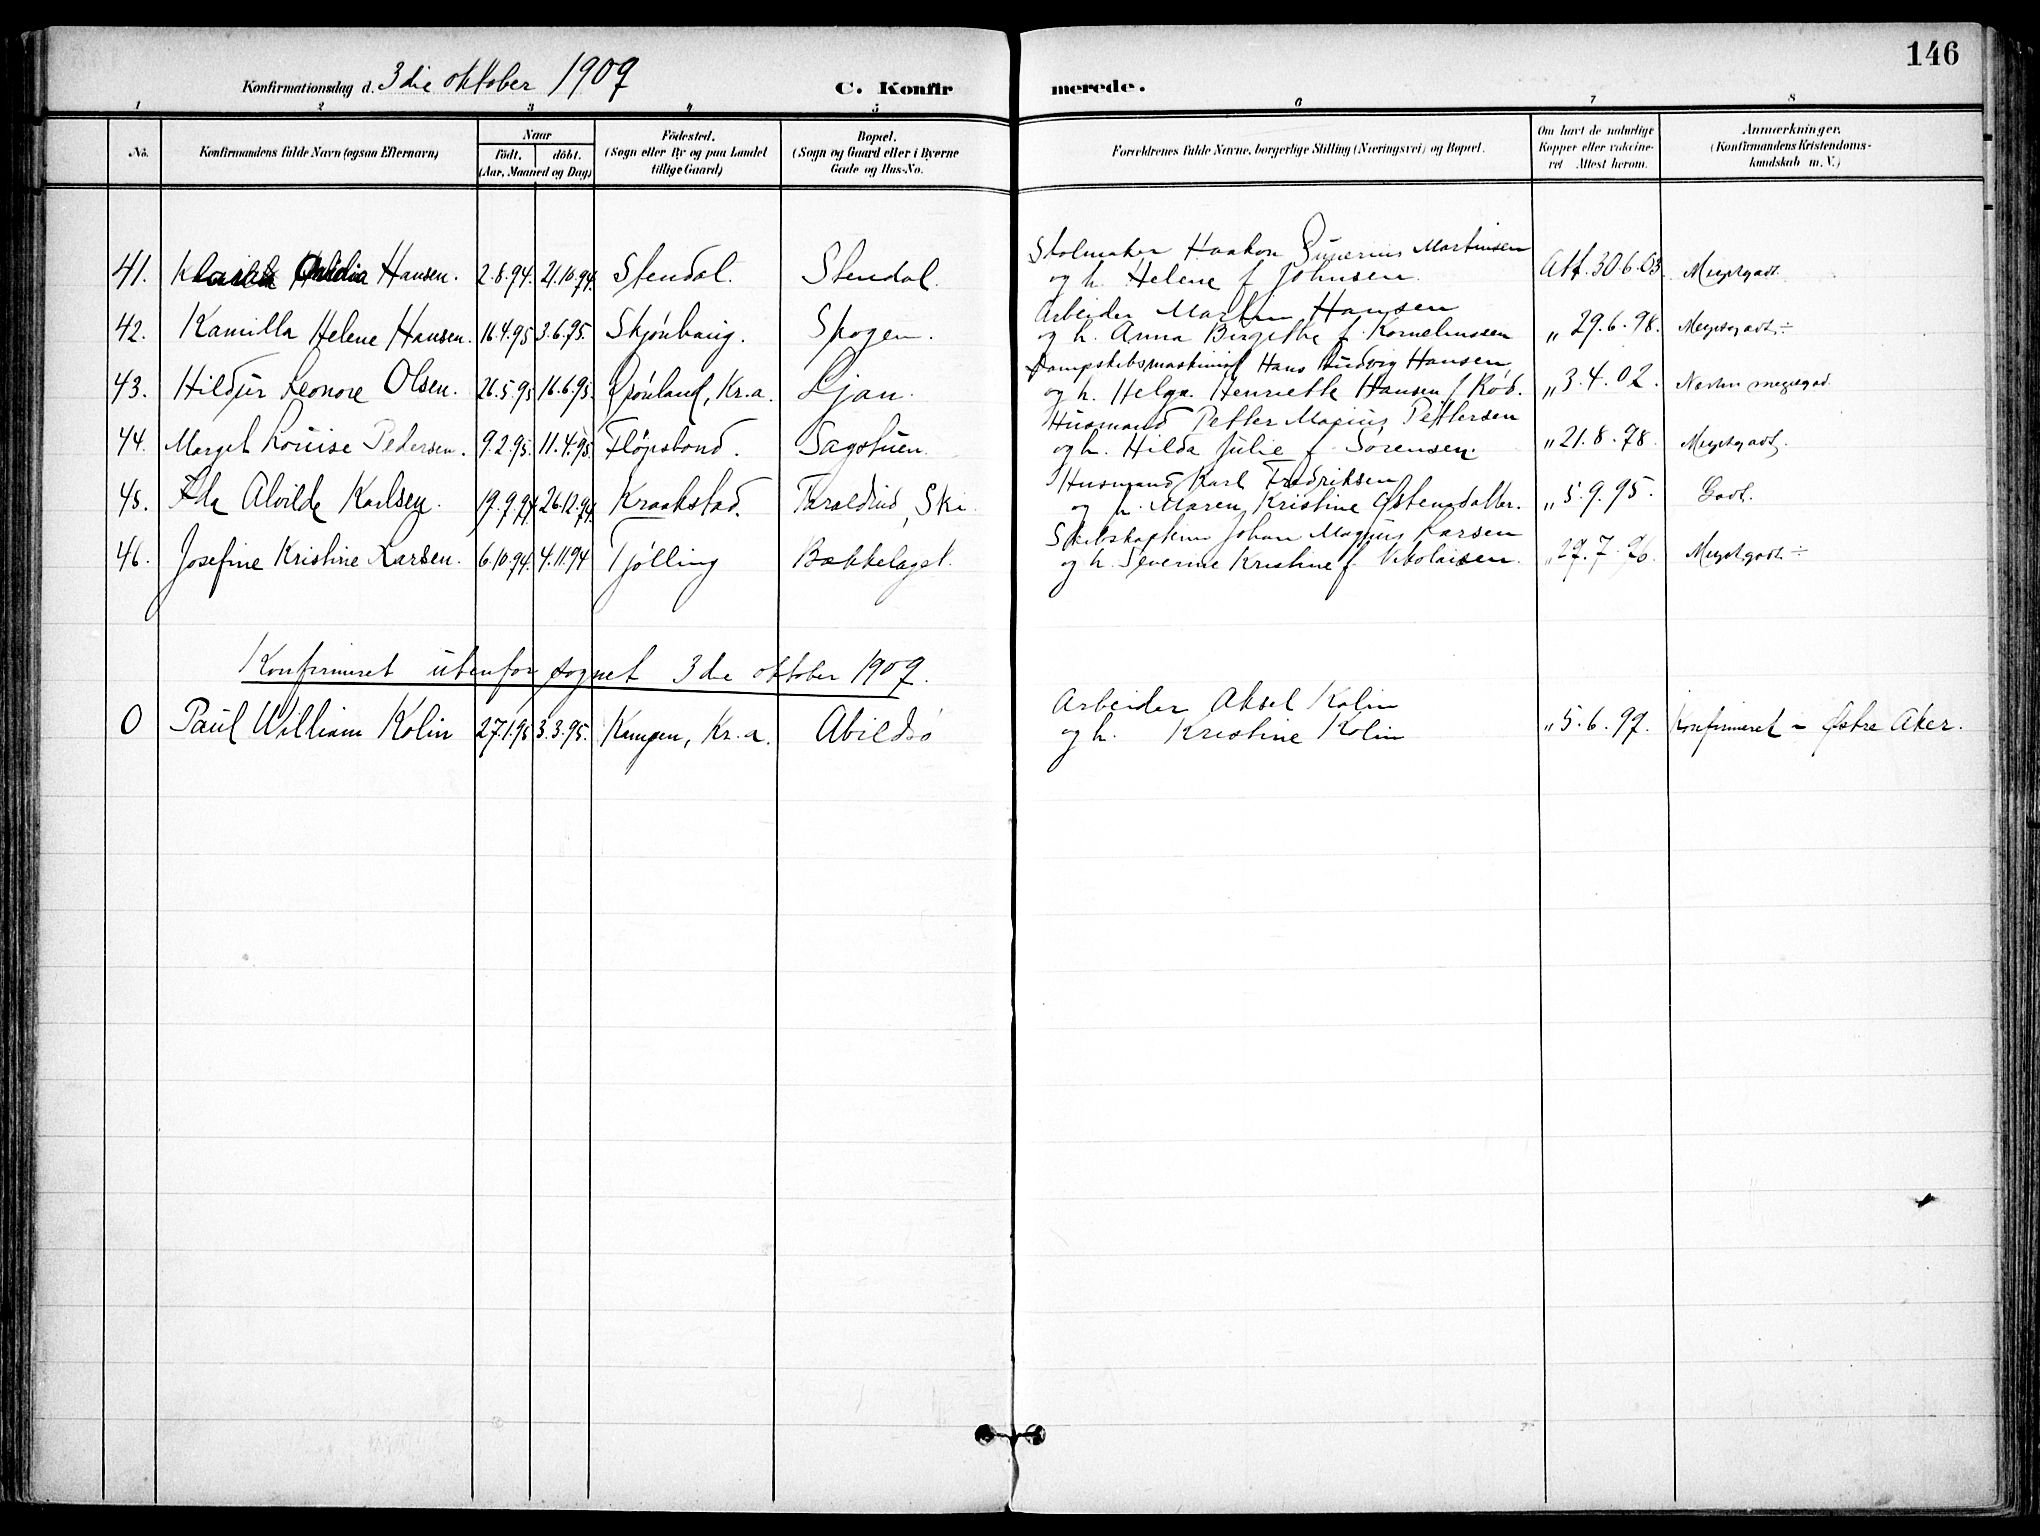 146
Konfirmationsdag d. 3die oktober 1909
C. Konfirmerede.
1 2 3 4 5 6 7 8
No.
Konfirmandens fulde Navn (ogsaa Efternavn)
Naar
födt. döbt.
(Aar, Maaned og Dag)
Födested.
(Sogn eller By og paa Landet
tillige Gaard)
Bopæl.
(Sogn og Gaard eller i Byerne
Gade og Hus-No.
Forældrenes fulde Navne, borgerlige Stilling (Næringsvei) og Bopæl.
Om havt de naturlige
Kopper eller vakcine-
ret Attest herom.
Anmærkninger.
(Konfirmandens Kristendoms-
kundskab m. V.)
Stolmaker Haakon Severius Martinsen
41. Hansen. 2.8.94. 21.10.94. Stendal. Stendal. og h. Helene f Johnsen. Att. 30.6.03 Megetgodt.
Arbeider Martin Hansen
42. Kamilla Helene Hansen. 16.4.95 3.6.95. Skjönhaug. Skogen. og h. Anna Birgitte f. Korneliussen " 29.6.98. Megetgodt ÷
Dampskibsmaskinist Hans Ludvig Hansen,
43. Hildur Leonore Olsen. 26.5.95 16.6.95. Grönland, Kr.a. Ljan. og h. Helga Henriette Hansen f Röd. " 3.4.02. Nesten megetgod.
Husmand Petter Marius Pettersen
44. Marget Louise Pedersen. 9.2.95. 11.4.95 Flöisbond. Sagstuen. og h. Hilda Julie f Sörensen. " 21.8.98. Megetgodt.
Husmand Karl Fredriksen
45. Ida Alvilde Karlsen. 19.9.94. 26.12.94. Kraakstad. Taraldrud, Ski. og h. Maren Kristine Östensdatter. " 5.9.95. Godt.
Skibskaptein Johan Magnus Larsen
46. Josefine Kristine Larsen. 6.10.94. 4.11.94 Tjölling Bækkelaget. og h. Severine Kristine f. Nikolaisen. " 27.7.96. Megetgodt. ÷
Konfirmeret utenfor sognet 3die oktober 1909.
Arbeider Aksel Kolin
0 Paul William Kolin 27.1.95 3.3.95. Kampen, Kr.a. Abildsö og h. Kristine Kolin " 5.6.97. Konfirmeret - Østre Aker.